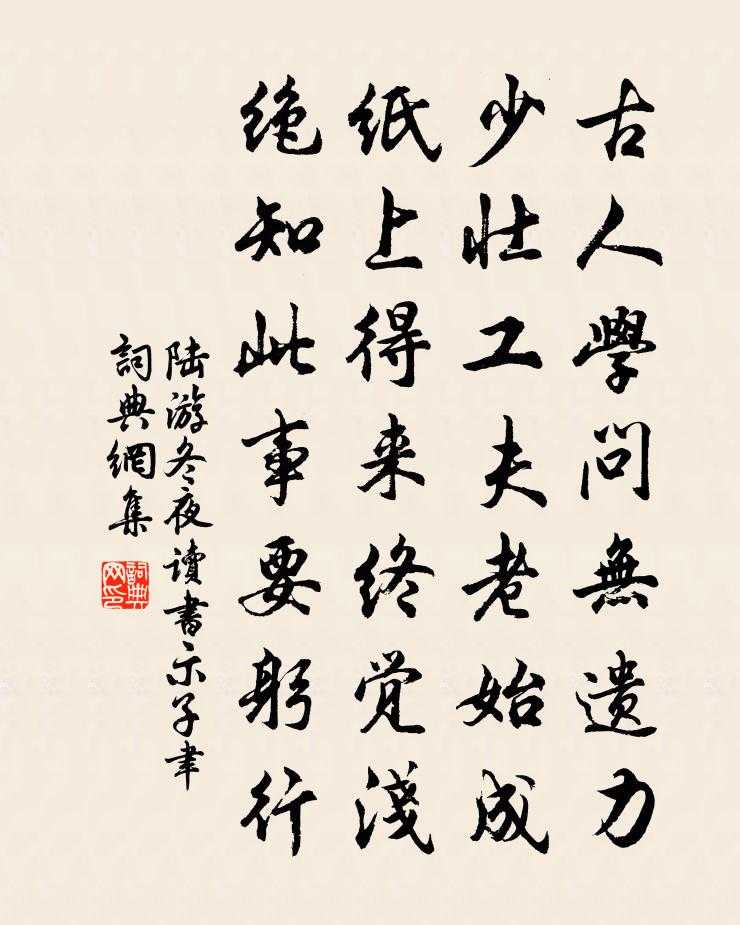 古人學問無遗力
少壮工夫老始成
纸上得来终觉淺
绝知此事要躬行
陆游冬夜讀書示子聿
詞典網集
詞典网印